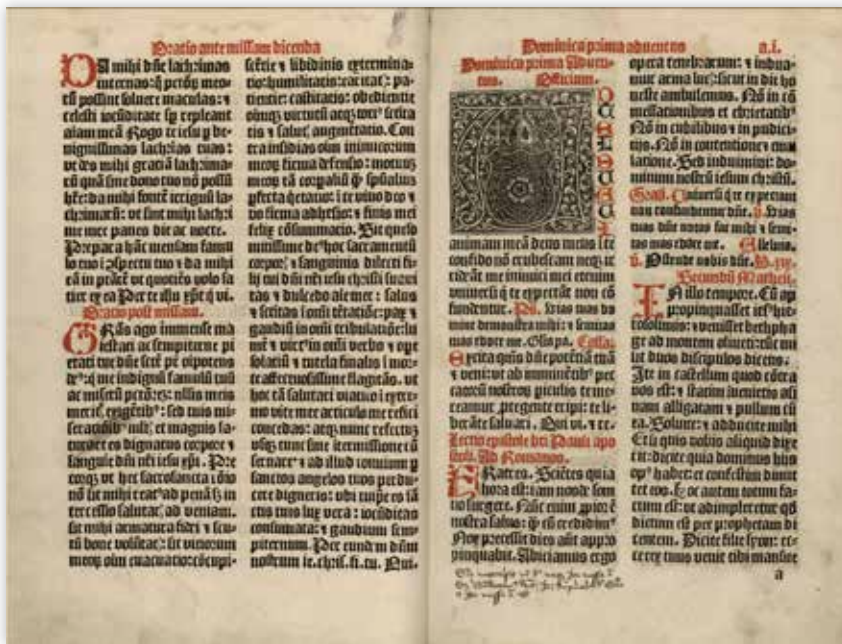 Oratio ante missam dicenda
DA mihi dñe lachrimas
internas: q̃ petõꝝ meo
tũ possint soluere maculas: ⁊
celesti iocũditate sp repleant
aĩam meã Rogo te iesu p be
nignissimas lachrĩas tuas:
vt des mihi gratiã lachrima
tũ quã sine dono tuo nõ possũ
hr̃e: da mihi fontẽ irriguũ la-
chrimatũ: vt sint mihi lachri
me mee panes die ac nocte.
Prepara hãc mensam famu
lo tuo ĩ ꝯspectu tuo ⁊ da mihi
Oratio post missam.
GRãs ago immense ma
iestati ac sempiterne pi
etati tue dñe sctẽ pr̃ oĩpotens
me indignũ famulũ tuũ
sed tuis mi
et magnis sa
turare es dignatus corpore ⁊
sanguine dñi nr̃i iesu xp̃i. Pre
vt hec sacrosancta
nõ sit mihi reatꝰ ad penã sꝫ in
tercessio salutarꝭ ad veniam.
sit mihi armatura fidei ⁊ scu
tũ bone volũtatꝭ: sit vitiorum
sẽtie ⁊ libidinis extermina
tio: humilitatis: caritatꝭ: pa-
tientie: castitatis: obedientie
tis ⁊ salutꝭ augmẽtatio. Con
tra insidias oĩm inimicorum
meoꝝ firma defensio: motuũ
meoꝝ tã corpaliũ q̃ spũaliũ
pfecta quetatio: ĩ te viuo deo ⁊
vo firma adhesio: ⁊ finis mei
felix cõsummatio. Sit quoso
corporꝭ ⁊ sanguinis dilecti fi
lij tui dñi nr̃i iesu christi suaui
tas ⁊ dulcedo aĩe mee: salus
⁊ scitas ĩ oĩni tẽtatiõe: pax ⁊
gaudiũ in oĩni tribulatiõe: lu
mẽ ⁊ virtꝰ in oĩni verbo ⁊ ope
solatiũ ⁊ tutela finalis ĩ mor-
te affectuosissime flagitãs. vt
hoc tã salutari viatico ĩ extre-
mo vite mee articulo me refici
concedas: atqꝫ nunc refectus
vsqꝫ tunc sine itermissione cõ
seruare ⁊ ad illud conuiuiũ p
sanctos angelos tuos per du
cere digneris: vbi tu ipe es sã
ctis tuis lux vera: iocũditas
consumata: ⁊ gaudium sem-
piternum. Per eundem dñm
nostrum ie. chris. fi. tu. Qui.
Dominica prima aduentus a.i.
Dominica prima Aduen
tus. Officium.
animam meã deus meus ĩ te
confido nõ erubescam neqꝫ ir
rideãt me inimici mei etenim
vniuersi q̃ te expectãt non cõ
fundentur. Ps. Vias tuas do
mine demonstra mihi: ⁊ semitas
tuas edoce me. Glia pa. Collã.
Excita quis̃ dñe potẽtiã tuã
⁊ veni: vt ab imminẽtibꝰ pec
catorũ nostroꝝ piculis te me-
reamur ptegente eripi: te li-
berãte saluari. Qui vi. ⁊ re.
Lectio epistole bti Pauli apo
stoli. Ad Romanos.
FRatres. Sciẽtes quia
hora est: iam nosde som
no surgere. Nũc enim ꝓpior ẽ
nostra salus: q̃ cũ credidimꝰ
Nox precessit dies aũt appro
pinquabit. Abiciamus ergo
opera tenebrarum: ⁊ indua-
mur arma lucꝭ: sicut in die ho
neste ambulemus. Nõ in cõ
messationibus et ebrietatibꝰ
Nõ in cubilibus ⁊ in pudici-
tijs. Nõ in contentione ⁊ emu
latione. Sed induimini: do-
minum nostrũ iesum christũ.
Grad. Vniuersi q̃ te expectant
non confundentur dñe. v̄. Vias
tuas dñe notas fac mihi ⁊ semi-
tas tuas edoce me. Alleluia.
v̄. Ostende nobis dñe.
Secundũ Matheũ.
IN illo tempore. Cũ ap
propinquasset iesꝰ hie-
rosolimis: ⁊ venisset bethpha
ge ad montem oliueti: tũc mi
sit duos discipulos dicens.
Ite in castellum quod cõtra
vos est: ⁊ statim inuenietis asi
nam alligatam ⁊ pullum cũ
ea. Soluite: ⁊ adducite mihi
Et si quis vobis aliquid dixe
rit: dicite quia dominus hijs
opꝰ habet: et confestim dimit
tet eos. Hoc autem totum fa-
ctum est: vt adimpleretur qd̃
dictum est per prophetam di
centem. Dicite filie syon: ec-
ce rex tuus venit tibi mansue
a